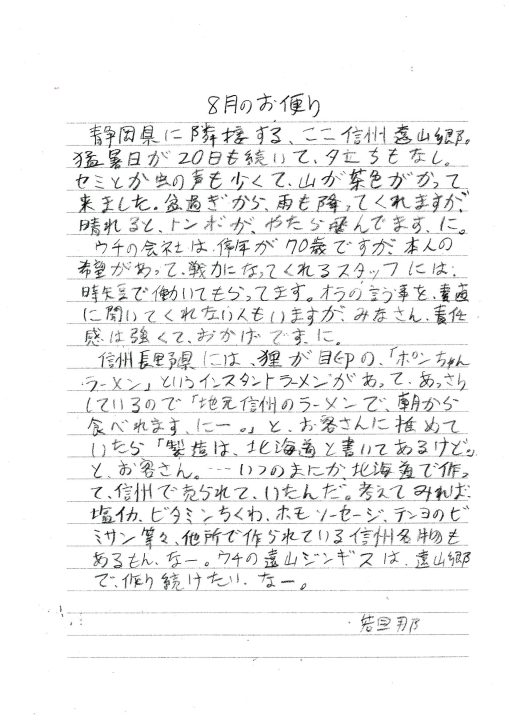 8月のお便り
静岡県に隣接する、ここ信州遠山郷。
猛暑日が20日も続いて、夕立ちもなし。
セミとか虫の声も少くて、山が茶色がかって
来ました。盆過ぎから、雨も降ってくれますが、
晴れると、トンボが、やたら飛んでます、に。
ウチの会社は、停年が70歳ですが、本人の
希望があって、戦力になってくれるスタッフには、
時短で働いてもらってます。オラの言う事を、素直
に聞いてくれない人もいますが、みなさん、責任
感は強くて、おかげです、に。
信州長野県には、狸が目印の、「ポンちゃん
ラーメン」というインスタントラーメンがあって、あっさり
しているので「地元信州のラーメンで、朝から
食べれます、にー。」と、お客さんに推めて
いたら「製造は、北海道と書いてあるけど」
と、お客さん。…いつのまにか、北海道で作っ
て、信州で売られて、いたんだ。考えてみれば、
塩イカ、ビタミンちくわ、ホモソーセージ、テンヨのビ
ミサン等々、他所で作られている信州名物も
あるもん、なー。ウチの遠山ジンギスは、遠山郷
で、作り続けたい、なー。
若旦那